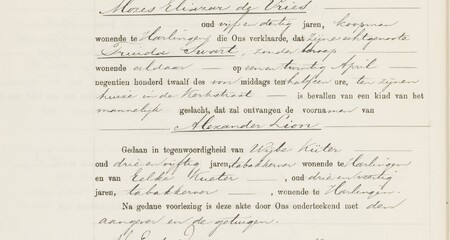 Mozes Eliazar de Vries
oud vijf en dertig jaren, koopman
wonende te Harlingen die Ons verklaarde, dat zijne echtgenoote
Swart, zonder beroep
wonende aldaar — op een en twintig April —
negentien honderd twaalf des voor middags ten half ure, ten zijnen
huize in de Kerkstraat — is bevallen van een kind van het
mannelijk geslacht, dat zal ontvangen de voornamen van
Alexander Lion
Gedaan in tegenwoordigheid van Wijbe Küter —
oud drie en vijftig jaren, tabakkerver wonende te Harlingen
en van Eelke Kueter —, oud drie en veertig
jaren, tabakkerver —, wonende te Harlingen.
Na gedane voorlezing is deze akte door Ons onderteekend met den
aangever en de getuigen.